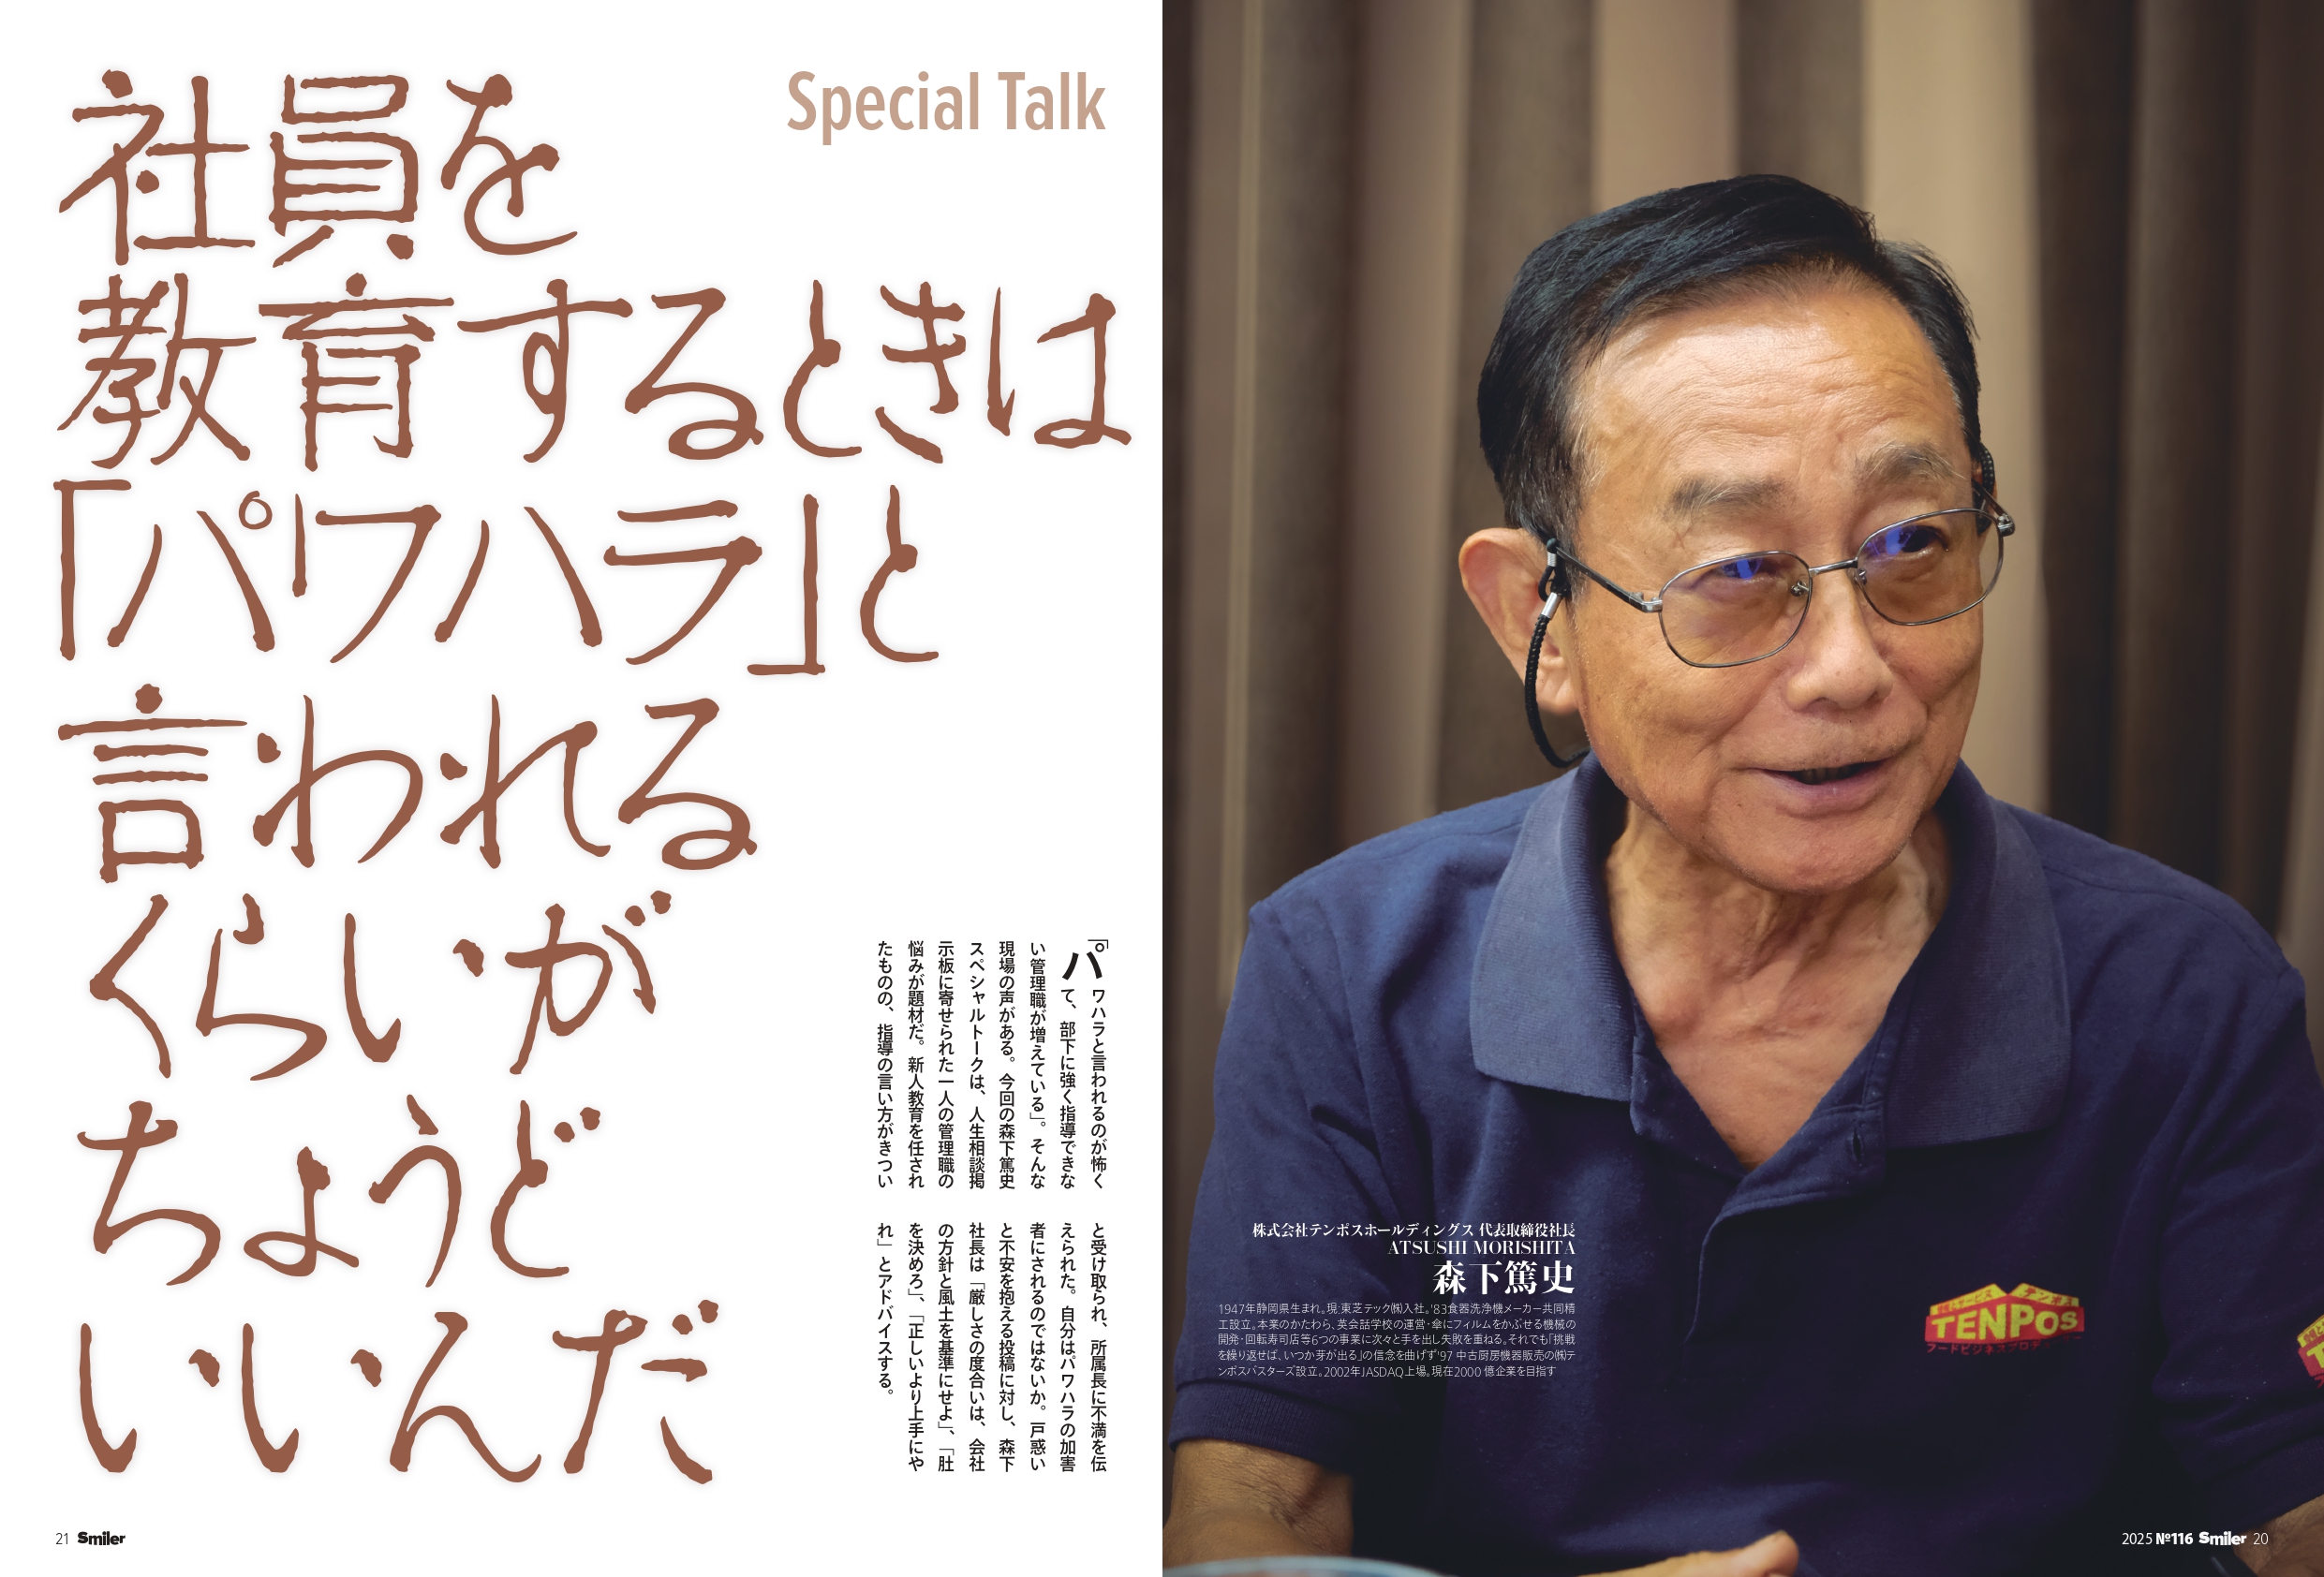 Special Talk
社員を
教育するときは
「パワハラ」と
言われる
くらいが
ちょうど
いいんだ
「パワハラと言われるのが怖く
て、部下に強く指導できな
い管理職が増えている」。そんな
現場の声がある。今回の森下篤史
スペシャルトークは、人生相談掲
示板に寄せられた一人の管理職の
悩みが題材だ。新人教育を任され
たものの、指導の言い方がきつい
と受け取られ、所属長に不満を伝
えられた。自分はパワハラの加害
者にされるのではないか。戸惑い
と不安を抱える投稿に対し、森下
社長は「厳しさの度合いは、会社
の方針と風土を基準にせよ」、「肚
を決めろ」、「正しいより上手にや
れ」とアドバイスする。
株式会社テンポスホールディングス 代表取締役社長
ATSUSHI MORISHITA
森下篤史
1947年静岡県生まれ。現・東芝テック㈱入社。'83食器洗浄機メーカー共同精
工設立。本業のかたわら、英会話学校の運営・傘にフィルムをかぶせる機械の
開発・回転寿司店等6つの事業に次々と手を出し失敗を重ねる。それでも「挑戦
を繰り返せば、いつか芽が出る」の信念を曲げず'97 中古厨房機器販売の㈱テ
ンポスバスターズ設立。2002年JASDAQ上場。現在2000 億企業を目指す
テンポス
TENPOS
21 Smiler
2025 №116 Smiler 20